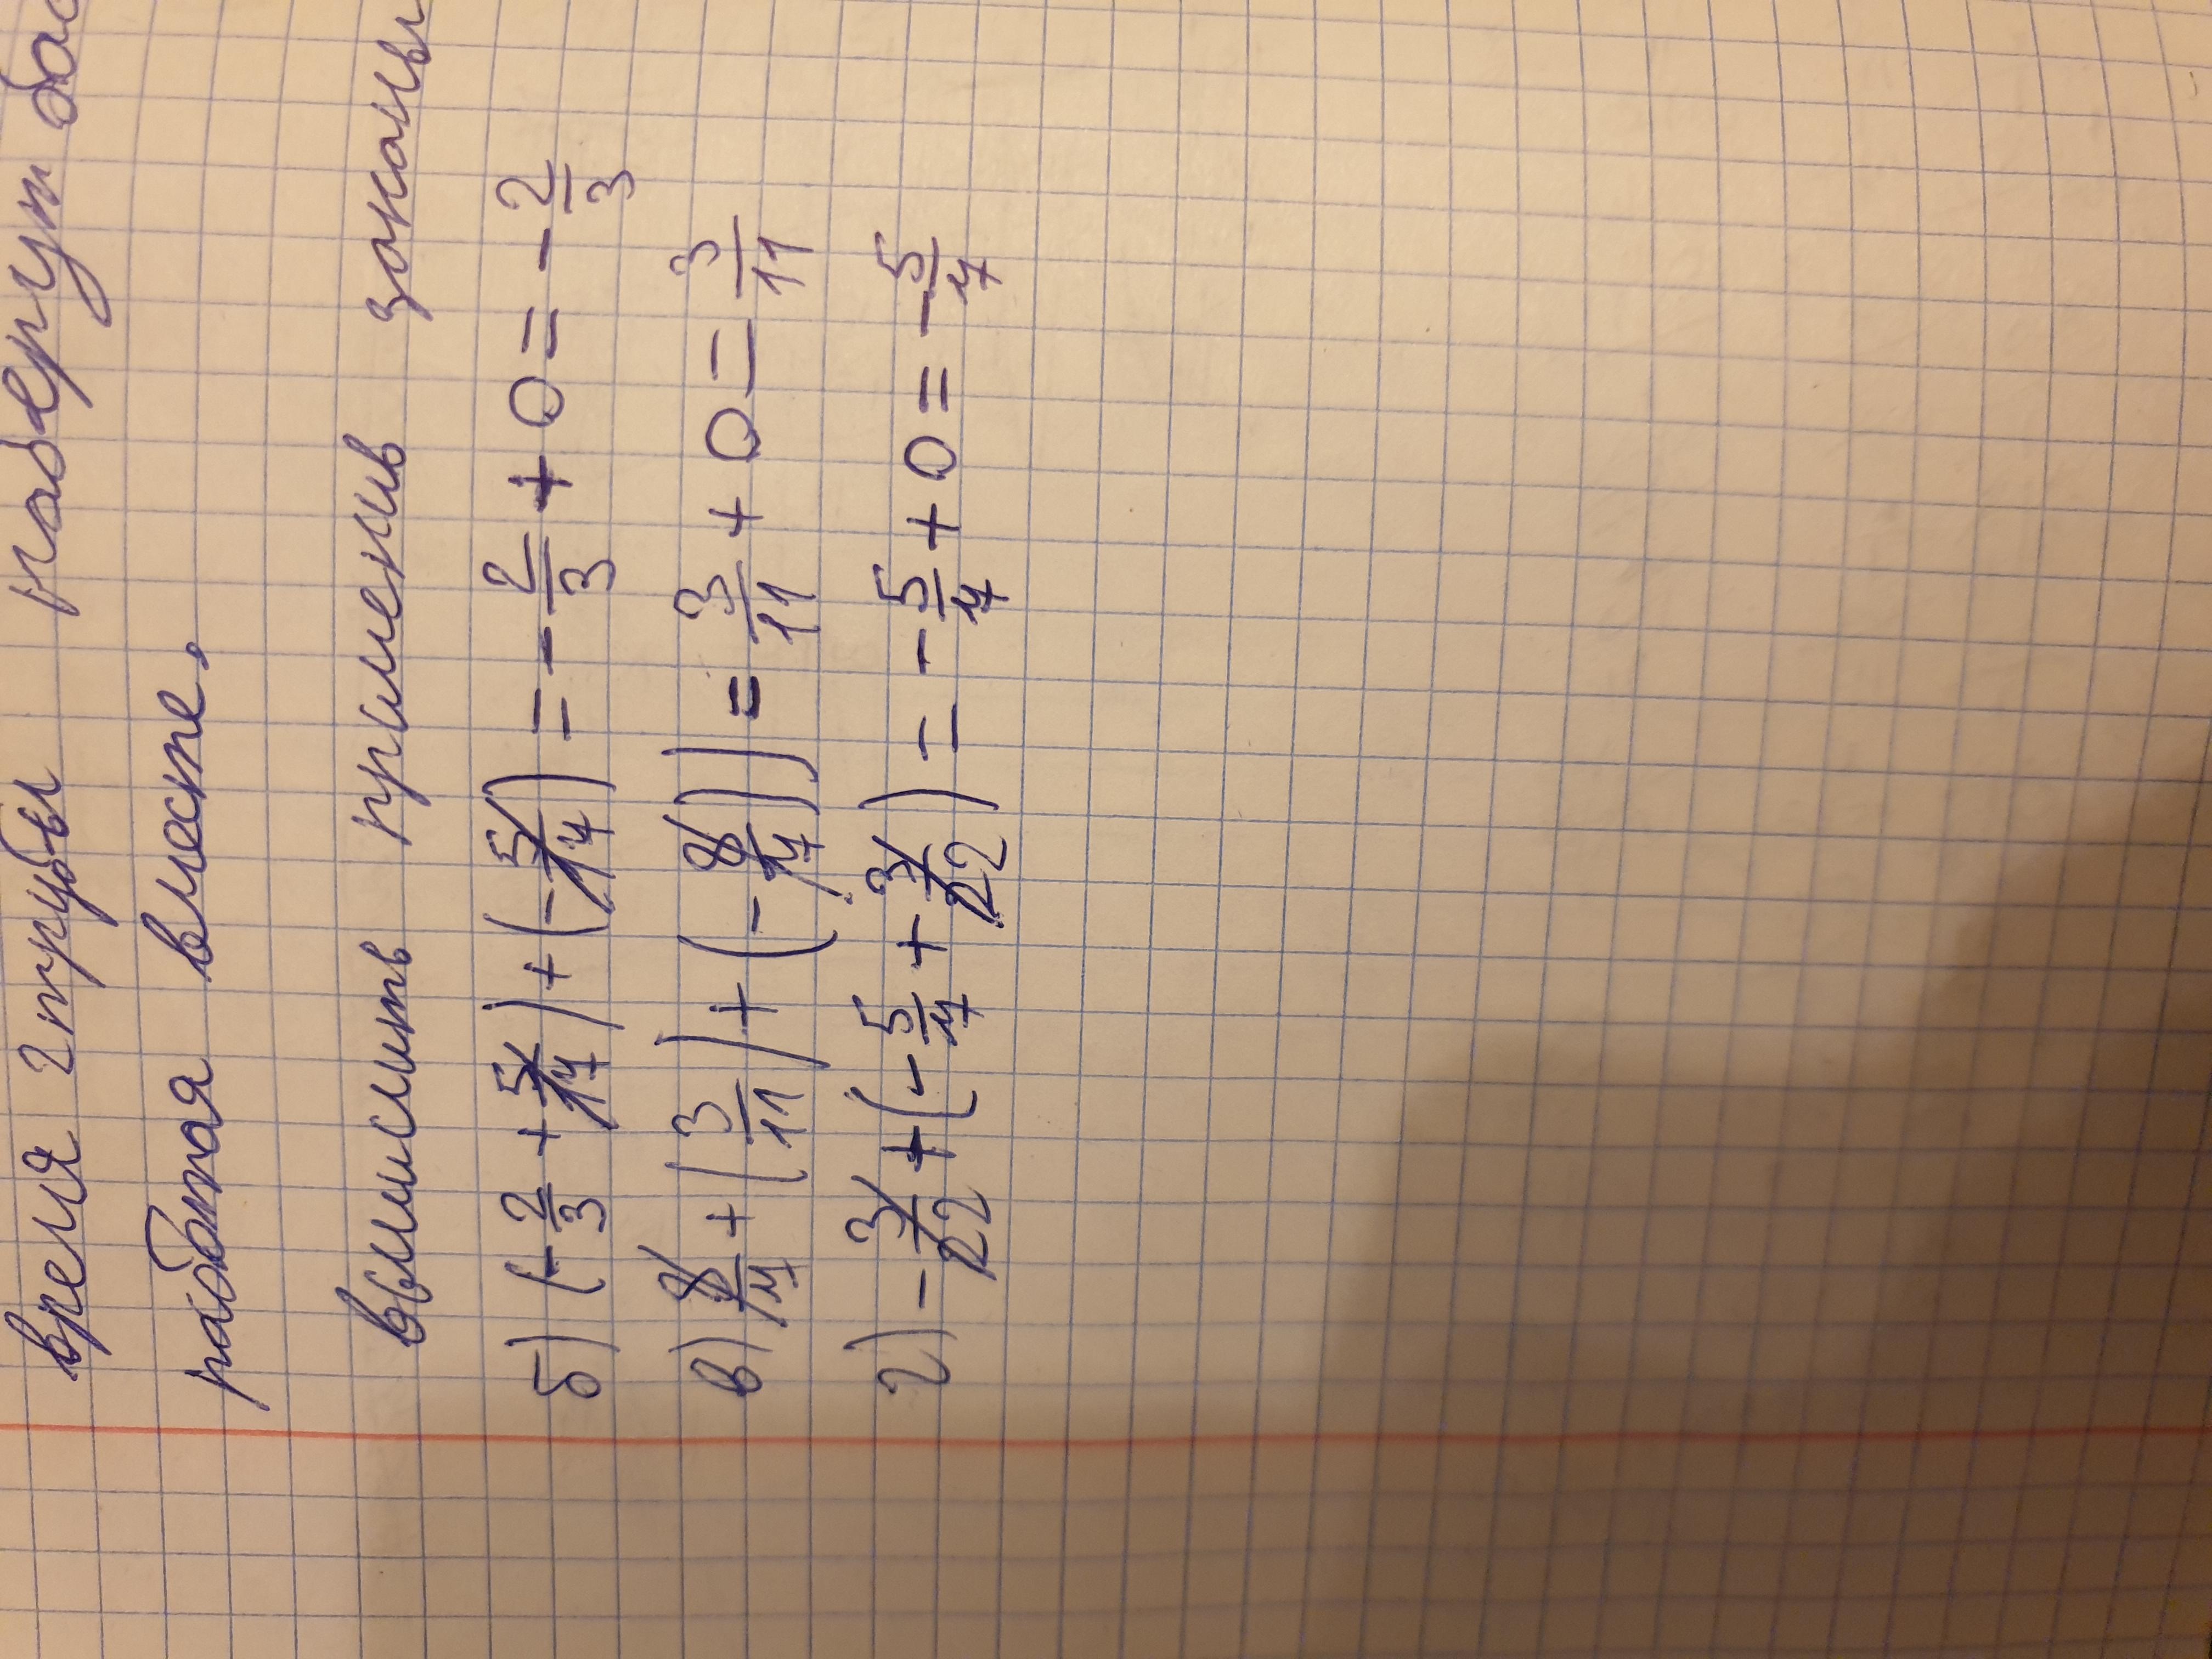 время 2 трубы наберут бас
работая вместе,
вычислить применив законы
б) (-2/3 + 5/17) + (-5/17) = -2/3 + 0 = -2/3
в) 8/17 + (3/11) + (-8/17)) = 3/11 + 0 = 3/11
г) -3/22 + (-5/7 + 3/22) = -5/7 + 0 = -5/7